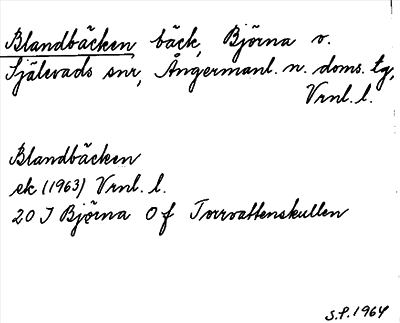 Blandbäcken bäck, Björna v.
Själevads snr, Ångermanl. n. doms. tg,
Vrnl. l.
Blandbäcken
ek (1963) Vrnl. l.
20 J Björna 0 f Torrvattenskullen
S.P. 1964